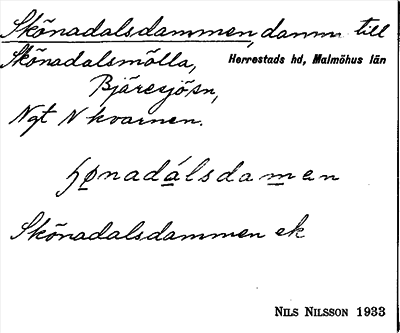 Skönadalsdammen, damm till
Skönadalsmölla, Herrestads hd, Malmöhus län
Bjäresjösn,
Ngt N kvarnen.
nadálsdamen
Skönadalsdammen ek
NILS NILSSON 1933